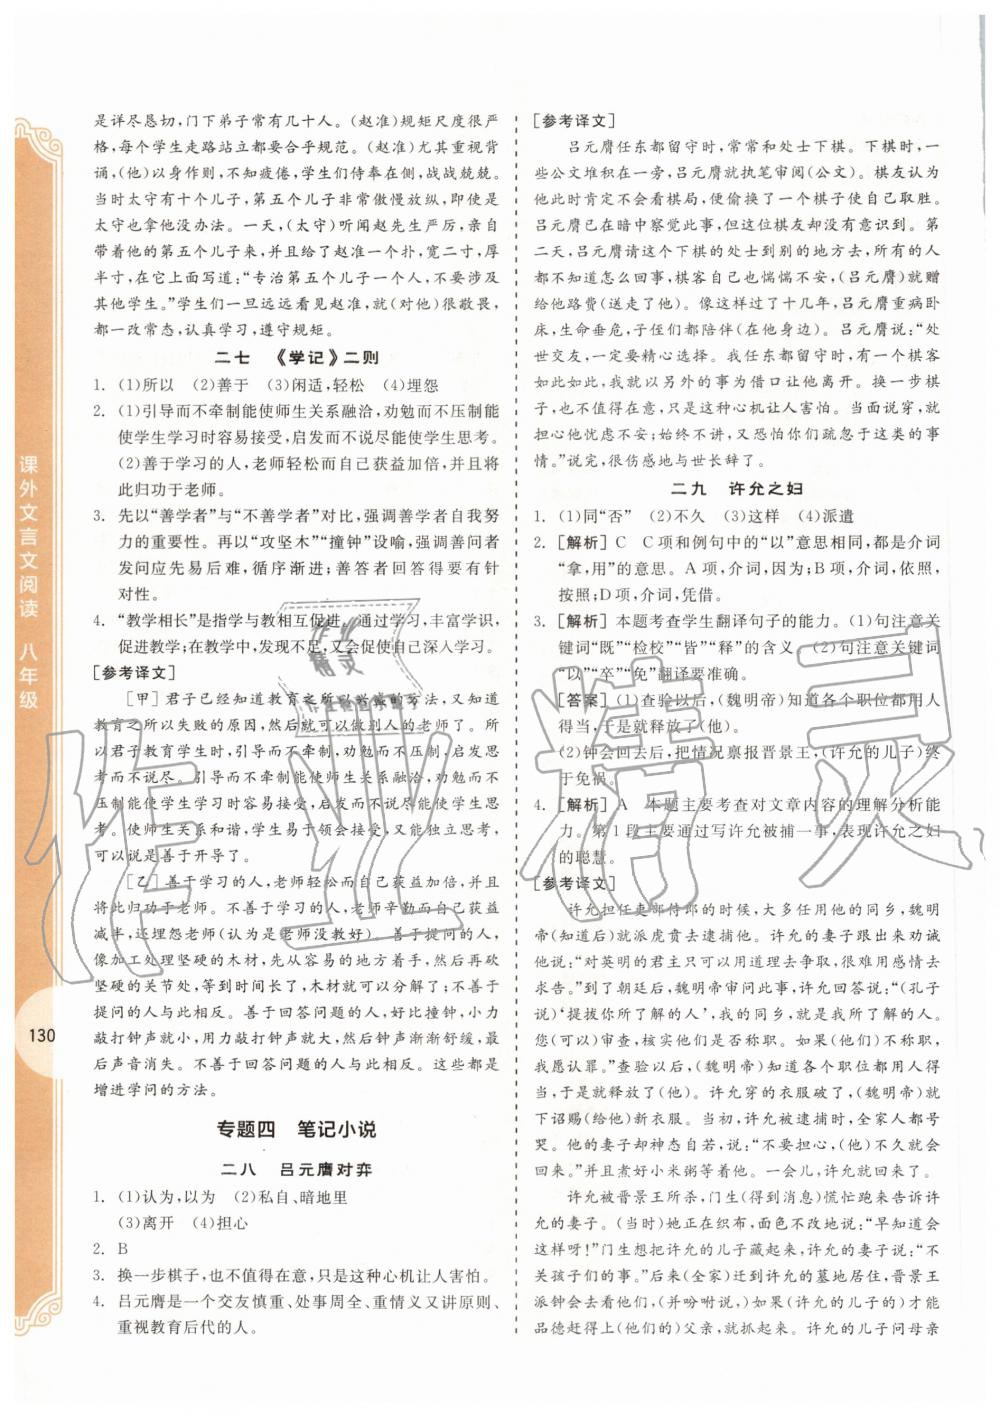 是详尽恳切,门下弟子常有几十人。(赵准)规矩尺度很严
格,每个学生走路站立都要合乎规范。(赵准)尤其重视背
诵,(他)以身作则,不知疲倦,学生们侍奉他时,战战兢兢。
当时太守有十个儿子,第五个儿子非常傲慢放纵,即使是
太守也拿他没办法。一天,(太守)听闻赵先生严厉,亲自
带着他的第五个儿子来,并且给了赵准一个界尺,宽二寸,厚
半寸,在它上面写道:“专治第五个儿子一个人,不要涉及
其他学生。”学生们一旦远远看见赵准,就(对他)很敬畏,
都一改常态,认真学习,遵守规矩。
二七 《学记》二则
1. (1)所以 (2)善于 (3)闲适,轻松 (4)埋怨
2. (1)引导而不牵制能使师生关系融洽,劝勉而不压制能
使学生学习时容易接受,启发而不说尽能使学生思考。
(2)善于学习的人,老师轻松而自己获益加倍,并且将
此归功于老师。
3. 先以“善学者”与“不善学者”对比,强调善学者自我努
力的重要性。再以“攻坚木”“撞钟”设喻,强调善学者
发问应先易后难,循序渐进;善答者回答要有针
对性。
4. “教学相长”是指学与教相互促进。通过学习,丰富学识,
促进教学;在教学中,发现不足,又会促使自己深入学习。
[参考译文]
[甲] 君子已经知道教育之所以兴盛的方法,又知道
教育之所以失败的原因,然后就可以做别人的老师了。所
以君子教育学生时,引导而不牵制,劝勉而不压制,启发
而不说尽。引导而不牵制能使师生关系融洽,劝勉而不
压制能使学生学习时容易接受,启发而不说尽能使学生思
考。使师生关系和谐,学生易于领会学习,又能独立思考,
可以说是善于开导了。
[乙] 善于学习的人,老师轻松而自己获益加倍,并且
将此归功于老师。不善于学习的人,老师辛勤而自己获益
减半,还埋怨老师(认为是老师没教好)。善于提问的人,
像加工处理坚硬的木材,先从容易的地方着手,然后砍坚
硬的关节处,等到时间长了,木材就可以分解了;不善于
提问的人与此相反。善于回答问题的人,好比撞钟,小力
敲打钟声就小,用力敲打钟声就大,然后钟声渐渐舒缓,最
后声音消失。不善于回答问题的人与此相反。这些都是
增进学问的方法。
专题四 笔记小说
二八 吕元膺对弈
1. (1)认为,以为 (2)私自、暗地里
(3)离开 (4)担心
2. B
3. 换一步棋子,也不值得在意,只是这种心机让人害怕。
4. 吕元膺是一个交友慎重、处事周全、重情义又讲原则、
重视教育后代的人。
[参考译文]
吕元膺任东都留守时,常常和处士下棋。下棋时,有
一些公文堆积在一旁,吕元膺就执笔审阅(公文)。棋友认为
他此时肯定不会看棋局,便偷偷换了一个棋子使自己取胜。
吕元膺已在暗中察觉此事,但这位棋友却没有意识到。第
二天,吕元膺请这个下棋的处士到别的地方去,所有的人
都不知道怎么回事,棋客自己也惴惴不安,(吕元膺)就赠
给他路费(送走了他)。像这样过了十几年,吕元膺重病卧
床,生命垂危,子侄们都陪伴(在他身边)。吕元膺说:“处
世交友,一定要精心选择。我任东都留守时,有一个棋客
如此如此,我就以另外的事为借口让他离开。换一步棋
子,也不值得在意,只是这种心机让人害怕。当面说穿,就
担心他忧虑不安;始终不讲,又恐怕你们疏忽于这类的事
情。”说完,很伤感地与世长辞了。
二九 许允之妇
1. (1)同“否” (2)不久 (3)这样 (4)派遣
2. [解析] C C项和例句中的“以”意思相同,都是介词
“拿,用”的意思。A项,介词,因为;B项,介词,依照,
按照;D项,介词,凭借。
3. [解析] 本题考查学生翻译句子的能力。(1)句注意关
键词“既”“检校”“皆”“释”的含义。(2)句注意关键词
“以”“卒”“免”翻译要准确。
[答案] (1)查验以后,(魏明帝)发现各个职位都用人
得当,于是就释放了(他)。
(2)钟会回去后,把情况禀报晋景王,(许允的儿子)终
于免祸。
4. [解析] A 本题主要考查对文章内容的理解分析能
力。第1段主要通过写许允被捕一事,表现许允之妇
的聪慧。
[参考译文]
许允担任吏部侍郎的时候,大多任用他的同乡,魏明
帝(知道后)就派虎贲去逮捕他。许允的妻子跟出来劝诫
他说:“对英明的君主只可以用道理去争取,很难用感情去
求告。”到了朝廷后,魏明帝审问他,许允回答说:“(孔子
说)‘提拔你所了解的人’,我的同乡,就是我所了解的人。
您(可以)审查,核实他们是否称职。如果(他们)不称职,
我愿认罪。”查验以后,(魏明帝)发现各个职位都用人得
当,于是就释放了(他)。许允穿的衣服破了,(魏明帝)就
下诏赐(给他)新衣服。当许允被逮捕时,全家人都号
哭。他的妻子却神态自若,说:“不要担心,(他)不久就会
回来。”并且煮好小米粥等着他。一会儿,许允就回来了。
许允被晋景王所杀,门生(得到消息)慌忙跑来告诉许
允的妻子。(当时)她正在织布,面色不改地说:“早知道会
这样呀!”门生想把许允的儿子藏起来,许允的妻子说:“不
关孩子们的事。”后来(全家)迁到许允的墓地居住,晋景王
派钟会去看他们,(并吩咐说,)如果(许允的儿子)的才能
品德赶得上(他们的)父亲,就抓起来。许允的儿子问母亲
课外文言文阅读 八年级
130
作业精灵